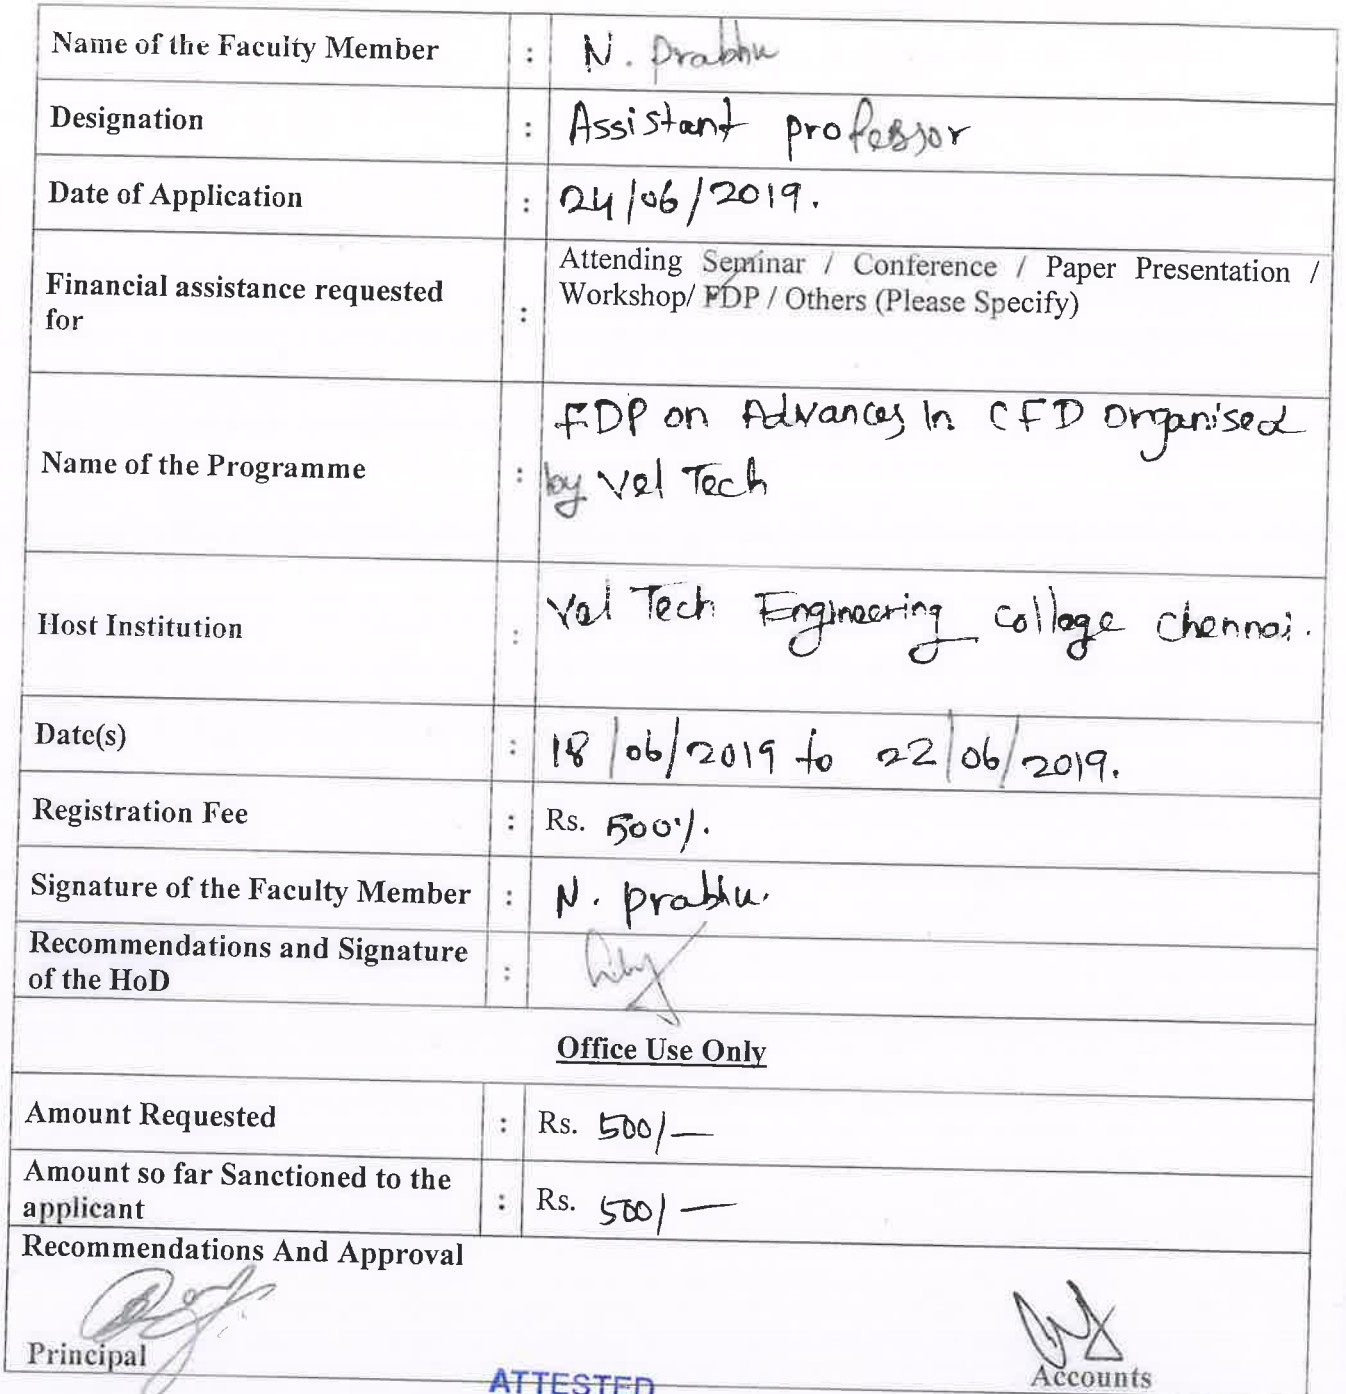 Name of the Faculty Member : N. Prabhu
Designation : Assistant professor
Date of Application : 24/06/2019.
Financial assistance requested
for
:
Attending Seminar / Conference / Paper Presentation /
Workshop/ FDP / Others (Please Specify)
Name of the Programme :
FDP on Advances in CFD Organised
by Vel Tech
Host Institution : Vel Tech Engineering College Chennai.
Date(s) : 18/06/2019 to 22/06/2019.
Registration Fee : Rs. 500/.
Signature of the Faculty Member : N. prabhu.
Recommendations and Signature
of the HoD
:
Office Use Only
Amount Requested : Rs. 500/—
Amount so far Sanctioned to the
applicant
: Rs. 500/—
Recommendations And Approval
Principal
Accounts
ATTESTED